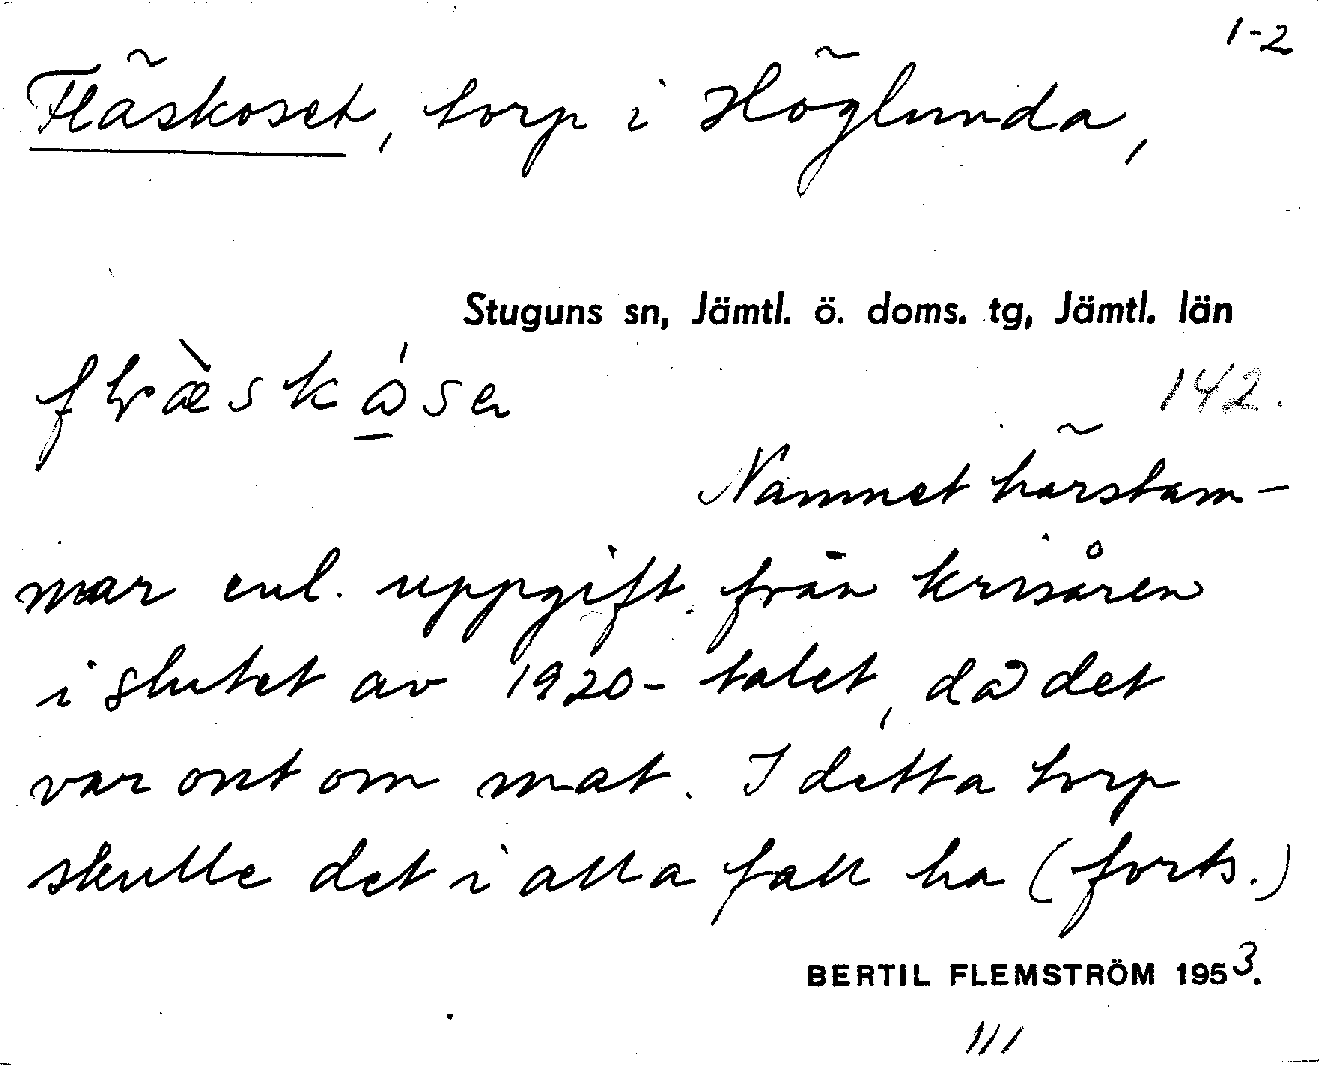 1-2
Fläskoset, torp i Höglunda,
Stuguns sn, Jämtl. ö. doms. tg, Jämtl. län
142.
Namnet härstam-
mar enl. uppgift från krisåren
i slutet av 1920-talet, då det
var ont om mat. I detta torp
skulle det i alla fall ha (forts.)
BERTIL FLEMSTRÖM 1953.